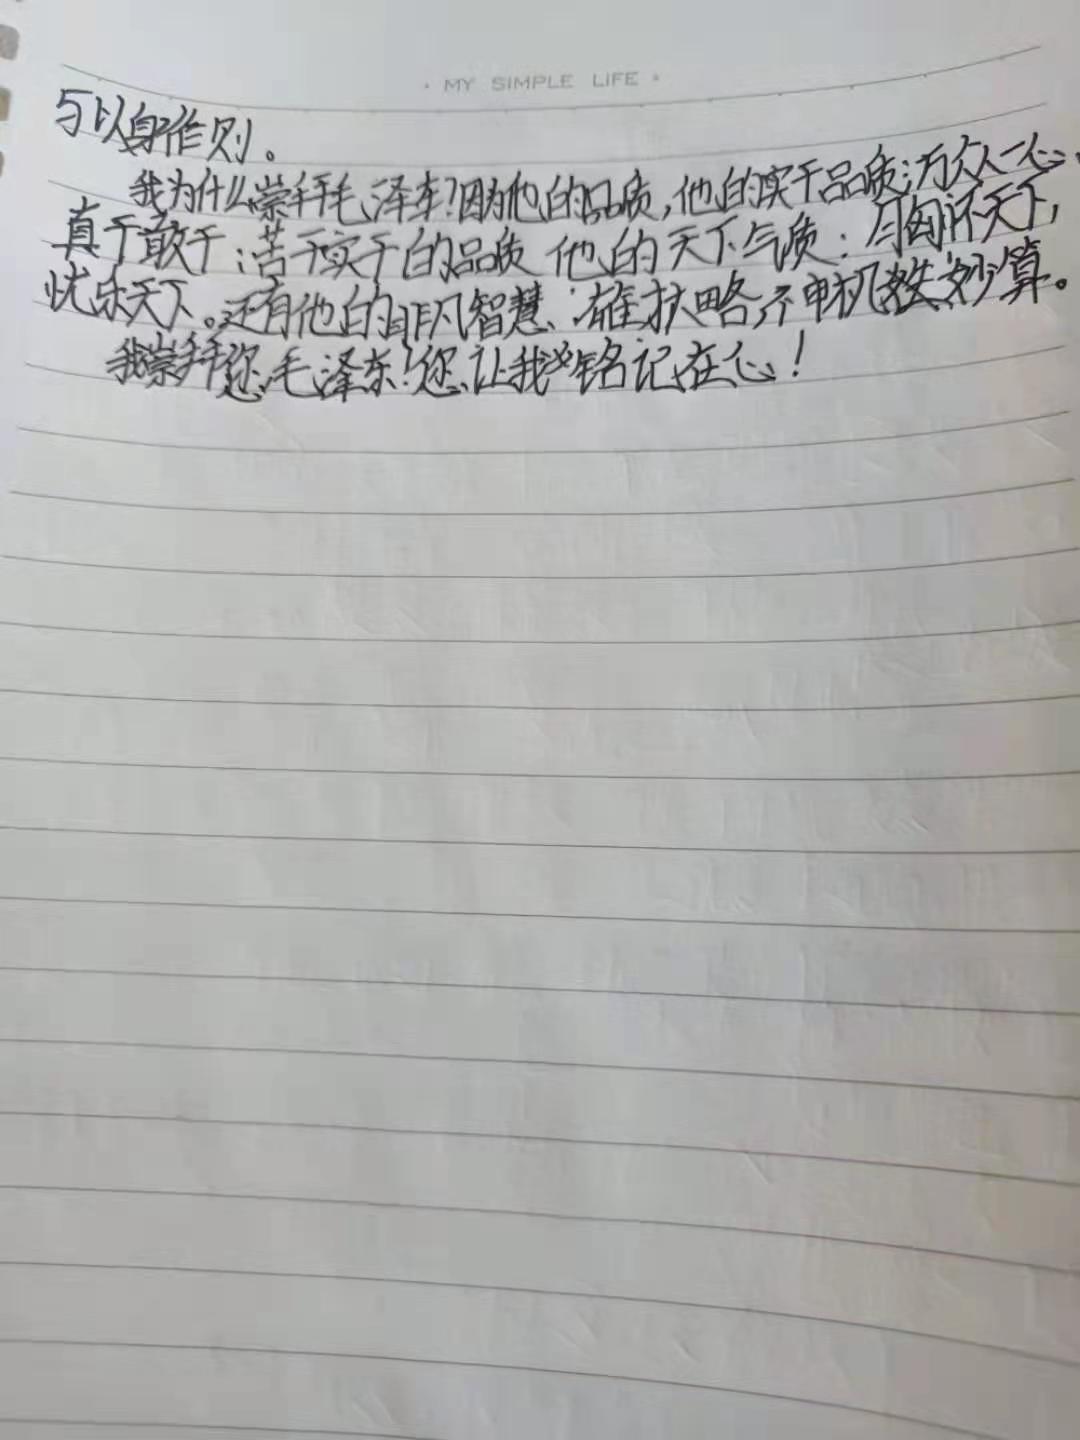 · MY SIMPLE LIFE ·
与以身作则。
我为什么崇拜毛泽东?因为他的品质,他的实干品质;万众一心、
真干敢干;苦干实干的品质 他的天下气质:胸怀天下,
忧乐天下。还有他的非凡智慧:雄才大略,神机妙算。
我崇拜您,毛泽东!您让我铭记在心!